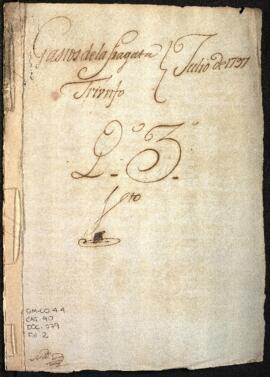 Gastos de la fragata
Triunfo
Julio de 1797
Q.º 3.º
Vto
GM-CO 44
CAJ. 90
DOC. 579
Fol. 2